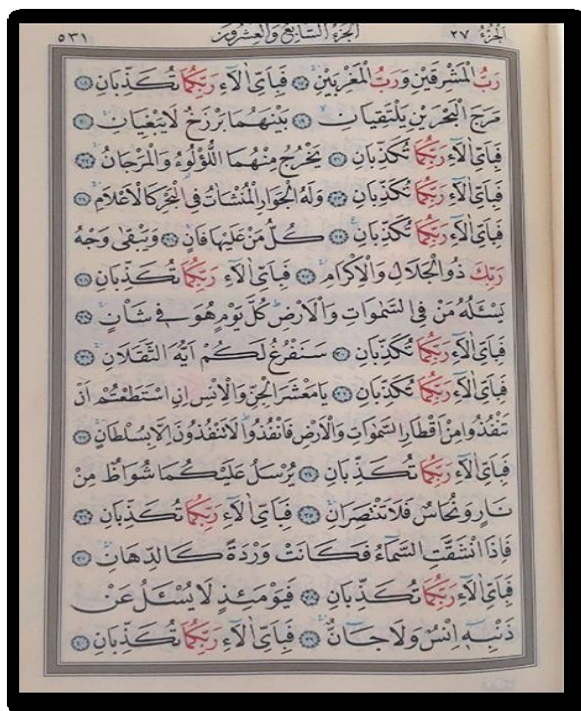 الجزء ٢٧ الجزء السابع والعشرون ٥٣١
رَبُّ الْمَشْرِقَيْنِ وَرَبُّ الْمَغْرِبَيْنِ ﴿١٧﴾ فَبِاَىِّ اٰلَٓاءِ رَبِّكُمَا تُكَذِّبَانِ ﴿١٨﴾
مَرَجَ الْبَحْرَيْنِ يَلْتَقِيَانِ ﴿١٩﴾ بَيْنَهُمَا بَرْزَخٌ لَا يَبْغِيَانِ ﴿٢٠﴾
فَبِاَىِّ اٰلَٓاءِ رَبِّكُمَا تُكَذِّبَانِ ﴿٢١﴾ يَخْرُجُ مِنْهُمَا اللُّؤْلُؤُ۬ وَالْمَرْجَانُ ﴿٢٢﴾
فَبِاَىِّ اٰلَٓاءِ رَبِّكُمَا تُكَذِّبَانِ ﴿٢٣﴾ وَلَهُ الْجَوَارِ الْمُنْشَاٰتُ فِى الْبَحْرِ كَالْاَعْلَامِ ﴿٢٤﴾
فَبِاَىِّ اٰلَٓاءِ رَبِّكُمَا تُكَذِّبَانِ ﴿٢٥﴾ كُلُّ مَنْ عَلَيْهَا فَانٍ ﴿٢٦﴾ وَيَبْقٰى وَجْهُ
رَبِّكَ ذُو الْجَلَالِ وَالْاِكْرَامِ ﴿٢٧﴾ فَبِاَىِّ اٰلَٓاءِ رَبِّكُمَا تُكَذِّبَانِ ﴿٢٨﴾
يَسْـَٔلُهُ مَنْ فِى السَّمٰوَاتِ وَالْاَرْضِ كُلَّ يَوْمٍ هُوَ فِى شَاْنٍ ﴿٢٩﴾
فَبِاَىِّ اٰلَٓاءِ رَبِّكُمَا تُكَذِّبَانِ ﴿٣٠﴾ سَنَفْرُغُ لَكُمْ اَيُّهَ الثَّقَلَانِ ﴿٣١﴾
فَبِاَىِّ اٰلَٓاءِ رَبِّكُمَا تُكَذِّبَانِ ﴿٣٢﴾ يَا مَعْشَرَ الْجِنِّ وَالْاِنْسِ اِنِ اسْتَطَعْتُمْ اَنْ
تَنْفُذُوا مِنْ اَقْطَارِ السَّمٰوَاتِ وَالْاَرْضِ فَانْفُذُوا لَا تَنْفُذُونَ اِلَّا بِسُلْطَانٍ ﴿٣٣﴾
فَبِاَىِّ اٰلَٓاءِ رَبِّكُمَا تُكَذِّبَانِ ﴿٣٤﴾ يُرْسَلُ عَلَيْكُمَا شُوَاظٌ مِنْ
نَارٍ وَنُحَاسٌ فَلَا تَنْتَصِرَانِ ﴿٣٥﴾ فَبِاَىِّ اٰلَٓاءِ رَبِّكُمَا تُكَذِّبَانِ ﴿٣٦﴾
فَاِذَا انْشَقَّتِ السَّمَٓاءُ فَكَانَتْ وَرْدَةً كَالدِّهَانِ ﴿٣٧﴾
فَبِاَىِّ اٰلَٓاءِ رَبِّكُمَا تُكَذِّبَانِ ﴿٣٨﴾ فَيَوْمَئِذٍ لَا يُسْـَٔلُ عَنْ
ذَنْبِهِٓ اِنْسٌ وَلَا جَانٌّ ﴿٣٩﴾ فَبِاَىِّ اٰلَٓاءِ رَبِّكُمَا تُكَذِّبَانِ ﴿٤٠﴾